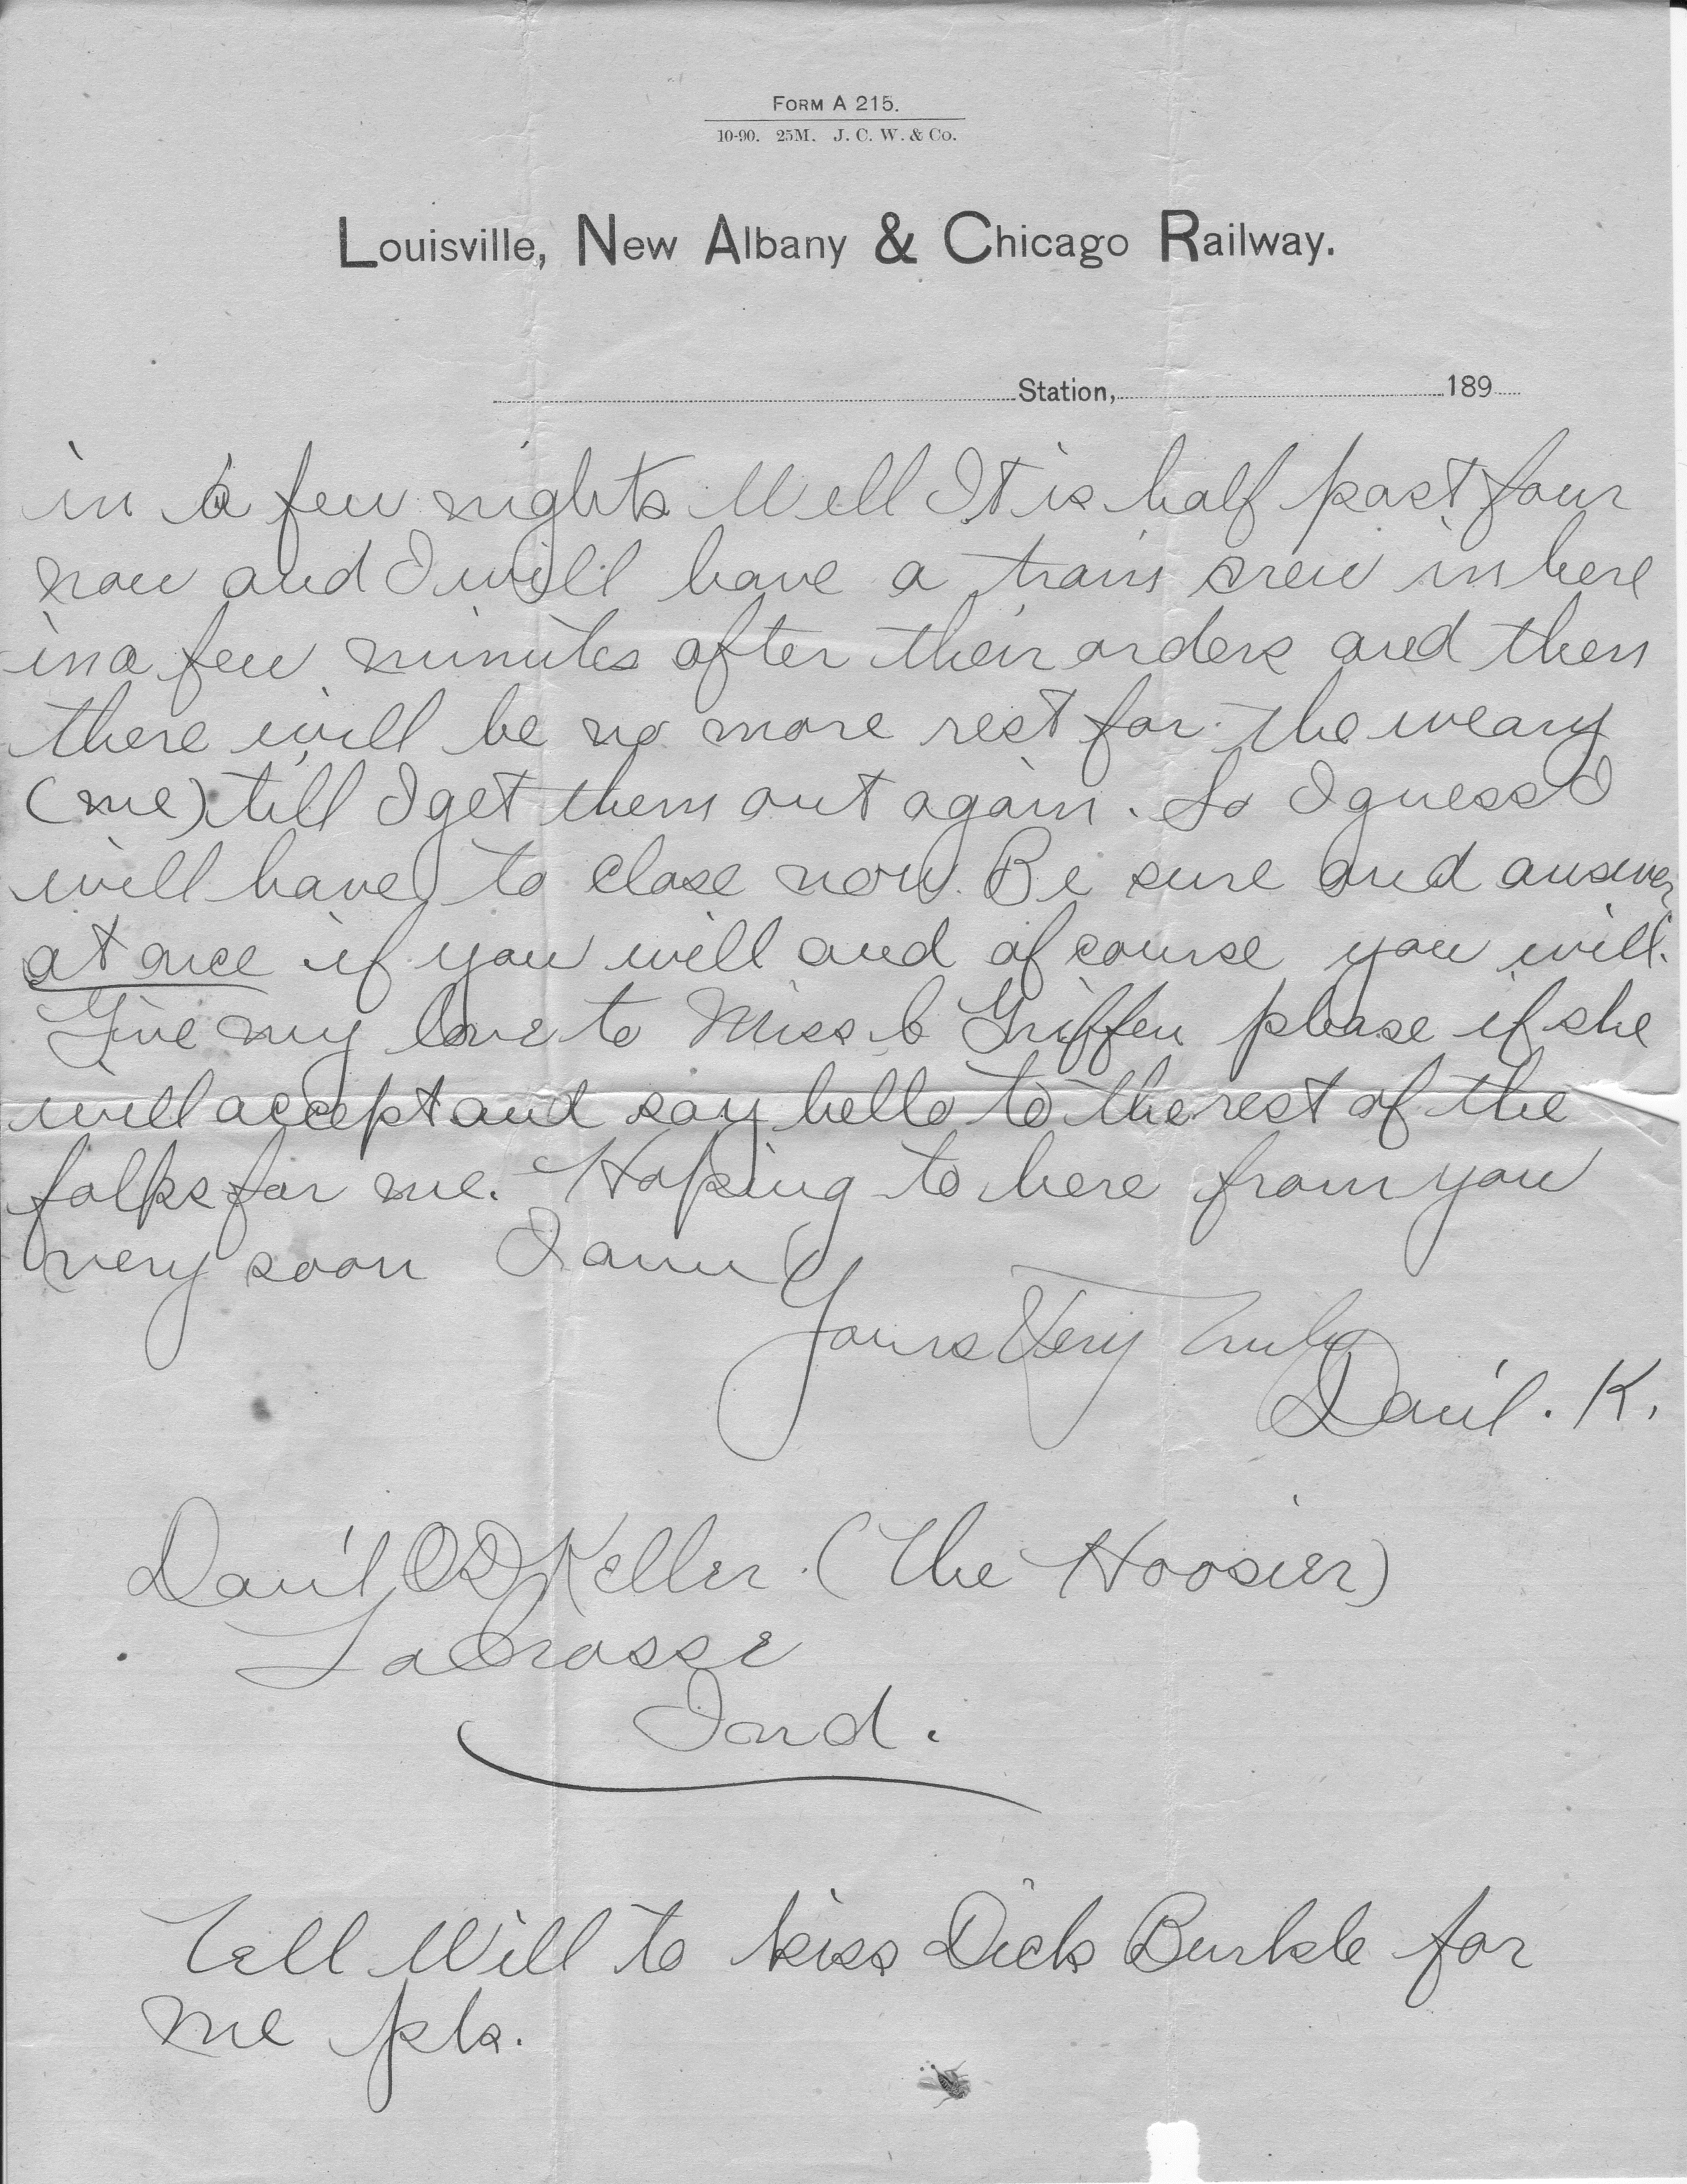 FORM A 215.
10-90. 25M. J. C. W. & Co.
Louisville, New Albany & Chicago Railway.
Station, 189
in a few nights. Well It is half past four
now and I will have a train crew in here
in a few minutes after their orders and then
there will be no more rest for the weary
(me) till I get them out again. So I guess I
will have to close now. Be sure and answer
at once if you will and of course you will.
Give my love to Miss Griffen please if she
will accept and say hello to the rest of the
folks for me. Hoping to here from you
very soon I am
Yours Very Truly
Dani'l. K.
Dani'l Keller. (The Hoosier)
LaCrosse
Ind.
Tell Will to kiss Dick Burkle for
me pls.